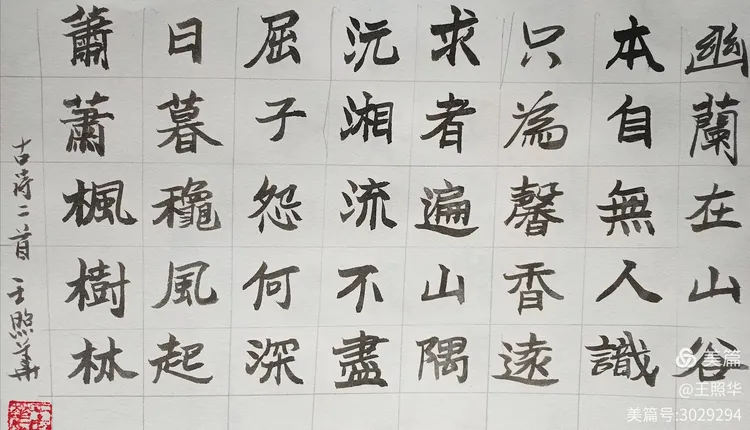 幽蘭在山谷
本自無人識
只為馨香遠
求者遍山隅
沅湘流不盡
屈子怨何深
日暮龝風起
蕭蕭楓樹林
古诗二首 王照华
美篇
@王照华
美篇号:3029294